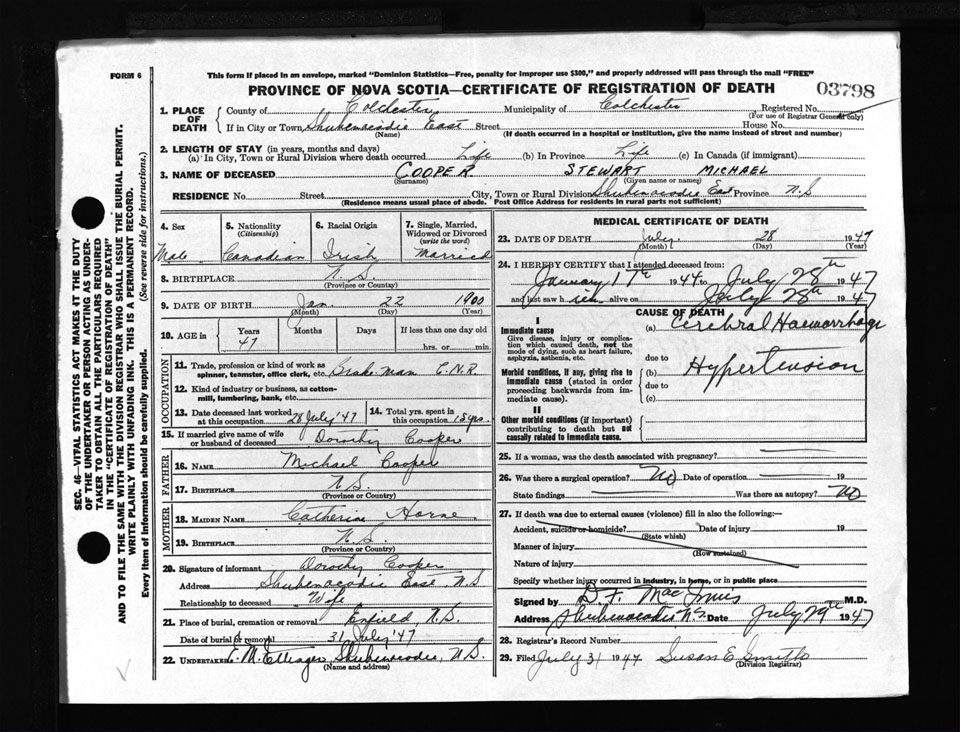 FORM 6
This form if placed in an envelope, marked "Dominion Statistics—Free, penalty for improper use $300," and properly addressed will pass through the mail "FREE"
PROVINCE OF NOVA SCOTIA—CERTIFICATE OF REGISTRATION OF DEATH
03798
1. PLACE OF DEATH
County of Colchester Municipality of Colchester Registered No.
(For use of Registrar General only)
If in City or Town, Shubenacadie East Street House No.
(Name) (If death occurred in a hospital or institution, give the name instead of street and number)
2. LENGTH OF STAY (in years, months and days)
(a) In City, Town or Rural Division where death occurred Life (b) In Province Life (c) In Canada (if immigrant)
3. NAME OF DECEASED COOPER STEWART MICHAEL
(Surname) (Given name or names)
RESIDENCE No. Street City, Town or Rural Division Shubenacadie East Province N.S
(Residence means usual place of abode. Post Office Address for residents in rural parts not sufficient)
4. Sex
Male
5. Nationality
(Citizenship)
Canadian
6. Racial Origin
Irish
7. Single, Married,
Widowed or Divorced
(write the word)
Married
8. BIRTHPLACE N.S.
(Province or Country)
9. DATE OF BIRTH Jan 22 1900
(Month) (Day) (Year)
10. AGE in
Years Months Days If less than one day old
47 hrs. or min.
OCCUPATION
11. Trade, profession or kind of work as
spinner, teamster, office clerk, etc. Brakeman C.N.R.
12. Kind of industry or business, as cotton-
mill, lumbering, bank, etc.
13. Date deceased last worked
at this occupation 28 July '47
14. Total yrs. spent in
this occupation 18 yrs.
15. If married give name of wife
or husband of deceased Dorothy Cooper
FATHER
16. NAME Michael Cooper
17. BIRTHPLACE N.S.
(Province or Country)
MOTHER
18. MAIDEN NAME Catherine Horne
19. BIRTHPLACE N.S.
(Province or Country)
20. Signature of informant Dorothy Cooper
Address Shubenacadie East N.S
Relationship to deceased Wife
21. Place of burial, cremation or removal Enfield, N.S.
Date of burial or removal 31 July '47
22. UNDERTAKER E. M. Ettinger, Shubenacadie, N.S.
(Name and address)
MEDICAL CERTIFICATE OF DEATH
23. DATE OF DEATH July 28 1947
(Month) (Day) (Year)
24. I HEREBY CERTIFY that I attended deceased from:
January 17th 1944 to July 28th 1947
and last saw h im alive on July 28th 1947
CAUSE OF DEATH
I
Immediate cause
Give disease, injury or compli-
cation which caused death, not the
mode of dying, such as heart failure,
asphyxia, asthenia, etc.
(a) Cerebral Haemorrhage
due to
Morbid conditions, if any, giving rise to
immediate cause (stated in order
proceeding backwards from im-
mediate cause).
(b) Hypertension
due to
(c)
II
Other morbid conditions (if important)
contributing to death but not
causally related to immediate cause.
25. If a woman, was the death associated with pregnancy?
26. Was there a surgical operation? No Date of operation 19
State findings Was there an autopsy? No
27. If death was due to external causes (violence) fill in also the following:—
Accident, suicide or homicide? Date of injury 19
(State which)
Manner of injury
(How sustained)
Nature of injury
Specify whether injury occurred in industry, in home, or in public place
Signed by D. F. MacInnis M.D.
Address Shubenacadie N.S. Date July 29th 1947
28. Registrar's Record Number
29. Filed July 31 1947 Susan E Smith
(Division Registrar)
SEC. 46—VITAL STATISTICS ACT MAKES IT THE DUTY
OF THE UNDERTAKER OR PERSON ACTING AS UNDER-
TAKER TO OBTAIN ALL THE PARTICULARS REQUIRED
IN THE "CERTIFICATE OF REGISTRATION OF DEATH"
AND TO FILE THE SAME WITH THE DIVISION REGISTRAR WHO SHALL ISSUE THE BURIAL PERMIT.
WRITE PLAINLY WITH UNFADING INK. THIS IS A PERMANENT RECORD.
Every item of information should be carefully supplied. (See reverse side for instructions.)